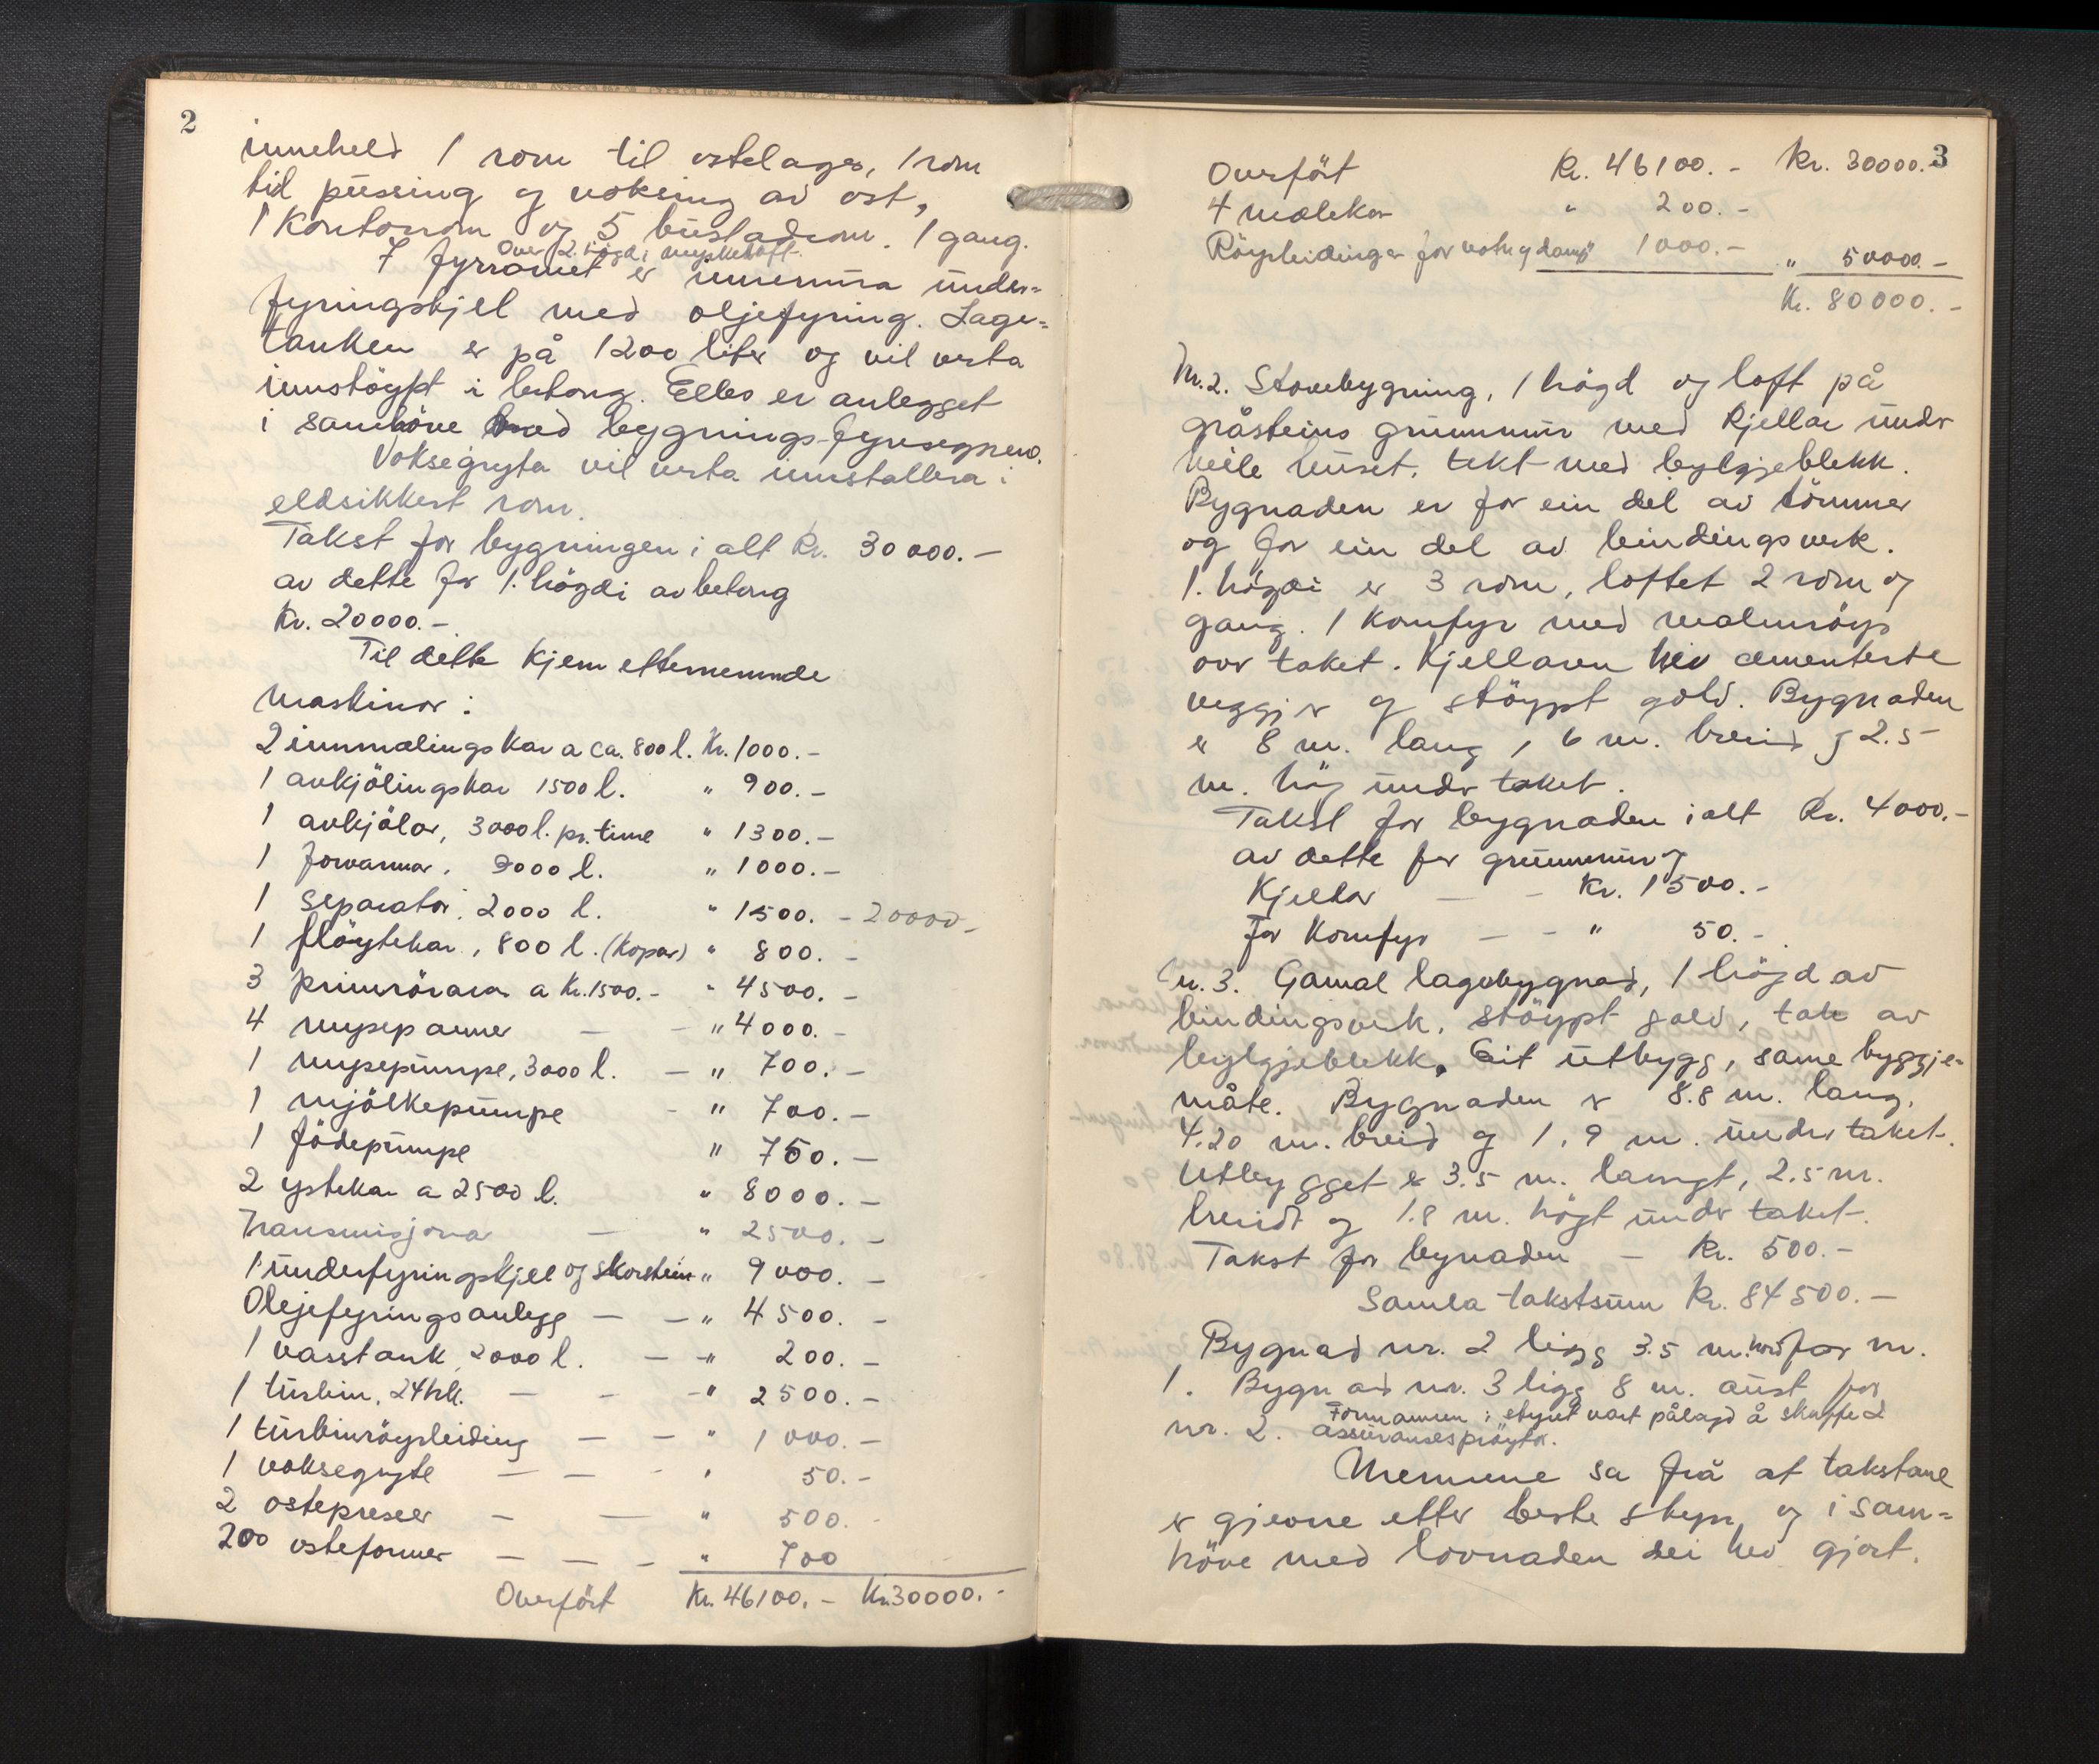 2
inneheld 1 rom til ostelager, 1 rom
til pussing og voksing av ost,
1 Kontorrom og 5 bustadrom. 1 gang.
Over 2. högdi myskeloft.
I fyrromet er innemura under=
fyringskjel med oljefyring. Lager=
tanken er på 1200 liter og vil verta
innstöypt i betong. Elles er anlegget
i samhöve med bygnings-fyresegnene.
Voksegryta vil verta innstallera i
eldsikkert rom.
Takst for bygningen i alt Kr. 30000.-
av dette for 1. högdi av betong
Kr. 20000.-
Til dette Kjem etternemnde
maskinor:
2 innmælingskar a ca. 800 l. Kr. 1000.-
1 avkjölingskar 1500 l. " 900.-
1 avkjölar, 3000 l. pr. time " 1300.-
1 forvarmar. 3000 l. " 1000.-
1 separator. 2000 l. " 1500. - 20000-
1 flöytekar, 800 l. (Kopar) " 800. -
3 primrörarar a Kr. 1500.- " 4500. -
4 mysepanner - - " 4000. -
1 mysepumpe, 3000 l. - " 700. -
1 mjölkepumpe - " 700. -
1 födepumpe " 750. -
2 ystekar a 2500 l. " 8000. -
Transmisjonar - " 2500. -
1 underfyringskjel og skorstein " 9000. -
Oljefyringsanlegg - - " 4500. -
1 vasstank 2000 l. - - " 200. -
1 turbin. 24 hk. - - - " 2500. -
1 turbinröyrleiding - - " 1000. -
1 voksegryte - - - " 50. -
2 ostepresser - - " 500. -
200 osteformer - - - " 700
Overfört Kr. 46100. - Kr. 30000. -
3
Overfört Kr. 46100. - Kr. 30000.
4 mælekar " 200. -
Röyrleidinger for vatn og damp 1000. - " 50000. -
Kr. 80000. -
Nr. 2. Stovebygning, 1 högd og loft på
gråsteins grunnmur med Kjellar under
heile huset, tekt med bylgjeblekk.
Bygnaden er for ein del av tömmer
og for ein del av bindingsverk.
1. högdi er 3 rom, loftet 2 rom og
gang. 1 Komfyr med malmröyr
over taket. Kjellaren hev cementerte
veggjer og stöypt golv. Bygnaden
er 8 m. lang, 6 m. breid og 2.5
m. høg under taket.
Takst for bygnaden i alt Kr. 4000.-
av dette for grunnmur og
Kjellar - - Kr. 1500. -
For Komfyr - - " 50. -
Nr. 3. Gamal lagerbygnad, 1 högd av
bindingsverk, stöypt golv, tak av
bylgjeblekk. Eit utbygg, same byggje=
måte. Bygnaden er 8.8 m. lang,
4.20 m. breid og 1.9 m. under taket.
Utbygget er 3.5 m. langt, 2.5 m.
breidt og 1.8 m. högt under taket.
Takst for bynaden - Kr. 500. -
Samla takstsum Kr. 84500. -
Bygnad nr. 2 ligg 3.5 m. nord for nr.
1. Bygnad nr. 3 ligg 8 m. aust for
nr. 2. Formannen i styret vart pålagd å skaffe 2
assuransesprøyter.
Mennene sa frå at takstane
er gjevne etter beste skyn og i sam=
höve med lovnaden dei hev gjort.